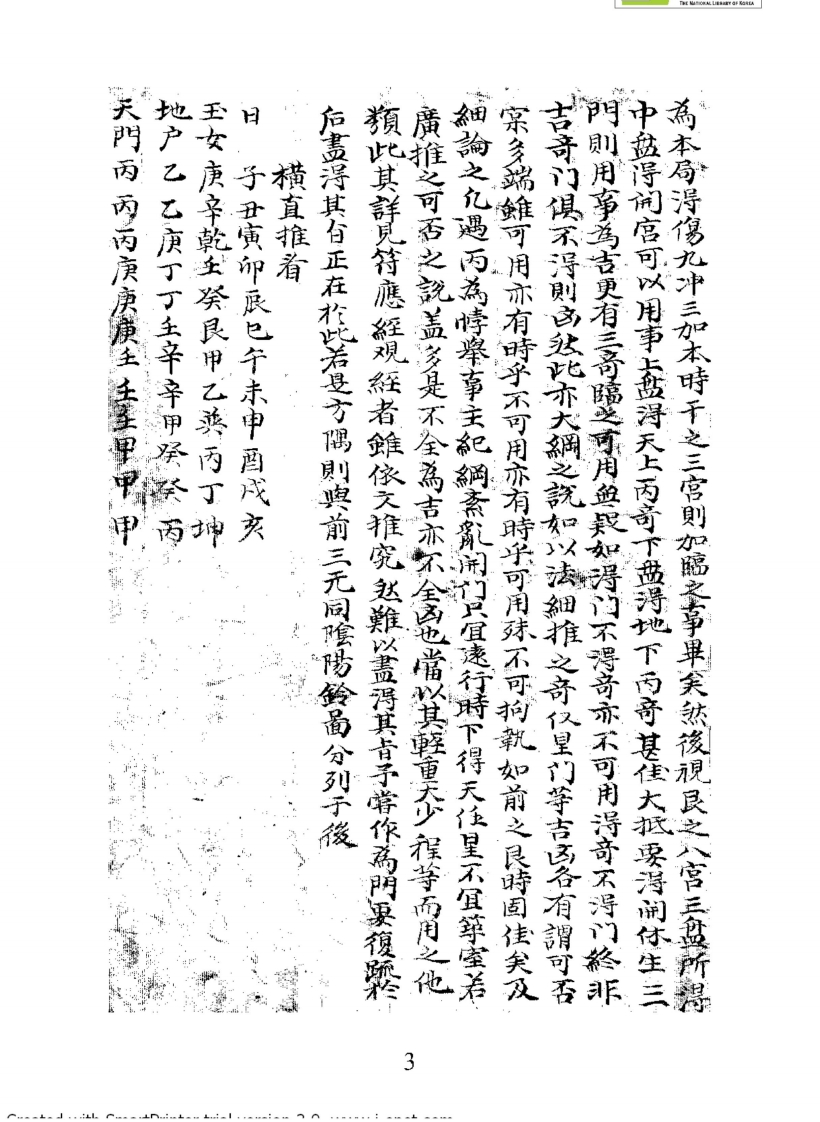 THE NATIONAL LIBRARY OF KOREA
為本局得傷九冲三加本時干之三宮則加臨之事畢矣然後視艮之八宮三盤所得
中盤得開宮可以用事上盤得天上丙奇下盤得地下丙奇甚佳大抵要得開休生三
門則用事為吉更有三奇臨之可用無疑如得门不得奇亦不可用得奇不得门終非
吉奇门俱不得則凶然此亦大綱之說如以法細推之奇仪星门等吉凶各有謂可否
寀多端雖可用亦有時乎不可用亦有時乎可用殊不可拘執如前之艮時固佳矣及
細論之凡遇丙為悖舉事主紀綱紊亂開门只宜遠行時下得天任星不宜築室若
廣推之可否之說盖多是不全為吉亦不全凶也當以其軽重大少程等而用之他
類此其詳見符應經观經者雖依文推究然難以盡得其旨予嘗作為門要復疏於
后盡得其旨正在於此若是方隅則與前三元同陰陽鈴啚分列于後
橫直推看
日 子丑寅卯辰巳午未申酉戌亥
玉女庚辛乾壬癸艮甲乙巽丙丁坤
地户乙乙庚丁丁壬辛辛甲癸癸丙
天門丙丙丙庚庚庚壬壬壬甲甲甲
3